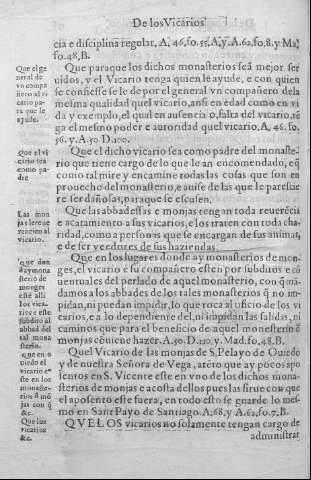 De los Vicarios
cia e disciplina regular, A. 46, fo. 55. A, y. A. 62, fo. 8. y Ma,
fo. 48, B.
Que el ge
neral dé
vn compa
ñero al vi
cario pa-
ra que le
ayude.
Que para que los dichos monasterios seā mejor ser
uidos, y el Vicario tenga quien le ayude, e con quien
se confiesse se le de por el general vn compañero de la
mesma qualidad quel vicario, ansi en edad como en vi
da y exemplo, el qual en ausencia o, falta del vicario, tē
ga el mesmo poder e autoridad quel vicario, A, 46. fo.
56. y. A. 50. D. 210.
Que el vi
cario sea
como pa-
dre
Que el dicho vicario sea como padre del monaste-
rio que tiene cargo de lo que le an encomendado, e q̄
como tal mire y encamine todas las cosas que son en
prouecho del monasterio, e auise de las que le paresciē
re ser dañosas, para que se escusen.
Las mon
jas reue
rencien al
vicario.
Que las abbadessas e monjas tengan toda reuerēcia
e acatamiento a sus vicarios, e los traten con toda cha-
ridad, como a personas que se encargan de sus animas,
e de ser veedores de sus haziendas
que don
day mona
sterio de
monges
esté allí
los vica-
rios e este
subdito al
abbad del
tal mona
sterio.
Que en los lugares donde ay monasterios de mon-
ges, el vicario e su compañero esten por subditos e cō
uentuales del perlado de aquel monasterio, con q̄ mā-
damos a los abbades de los tales monasterios q̄ no im
pidan, ni puedan impidir, lo que toca al oficio de los vi
carios, e a lo dependiente del, ni impidan las salidas, ni
caminos que para el beneficio de aquel monesterio d̄
monjas cōuiene hazer, A. 50. D. 220. y. Mad. fo, 48. B.
que en o
uiedo el
vicario e-
ste en los
monaste-
rios d̄ mō
jas con q̄
&c.
Quel Vicario de las monjas de S, Pelayo de Ouiedo
y de nuestra Señora de Vega, atēto que ay pocos apo
sentos en S. Vicente este en vno de los dichos mona-
sterios de monjas e a costa dellos pues las sirue con que
el aposento este fuera, en todo esto se guarde lo mes-
mo en Sant Payo de Santiago. A, 68, y A. 62, fo. 7. B.
Que los
vicarios
&c.
QVE LOS vicarios no solamente tengan cargo de
administrar